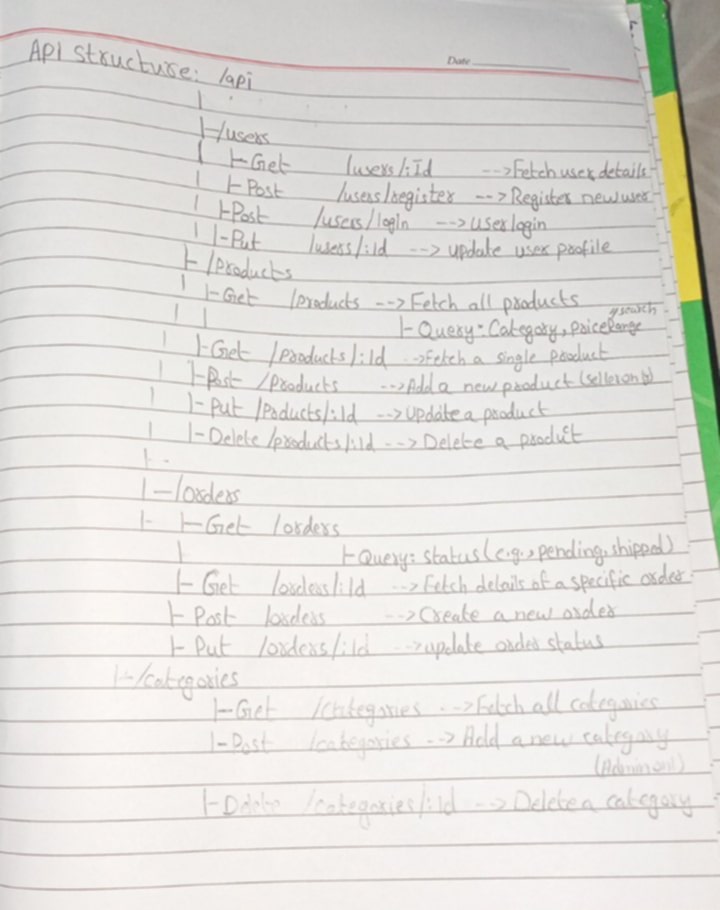 Date
API structure: /api
|-/users
|-Get /users/:Id --> Fetch user details
|-Post /users/register --> Register new user
|-Post /users/login --> user login
|-Put /users/:id --> update user profile
|- /products
|-Get /products --> Fetch all products
|-Query: Category, priceRange, search
|-Get /products/:Id --> Fetch a single product
|-Post /products --> Add a new product (seller only)
|-Put /Poducts/:Id --> update a product
|-Delete /products/:id --> Delete a product
|-/orders
|-Get /orders
|-Query: status (e.g., pending, shipped)
|- Get /orders/:id --> Fetch details of a specific order
|- Post /orders --> Create a new order
|- Put /orders/:Id --> update order status
|-/categories
|-Get /categories --> Fetch all categories
|-Post /categories --> Add a new category
(Admin onl)
|-Delete /categories/:Id --> Delete a category